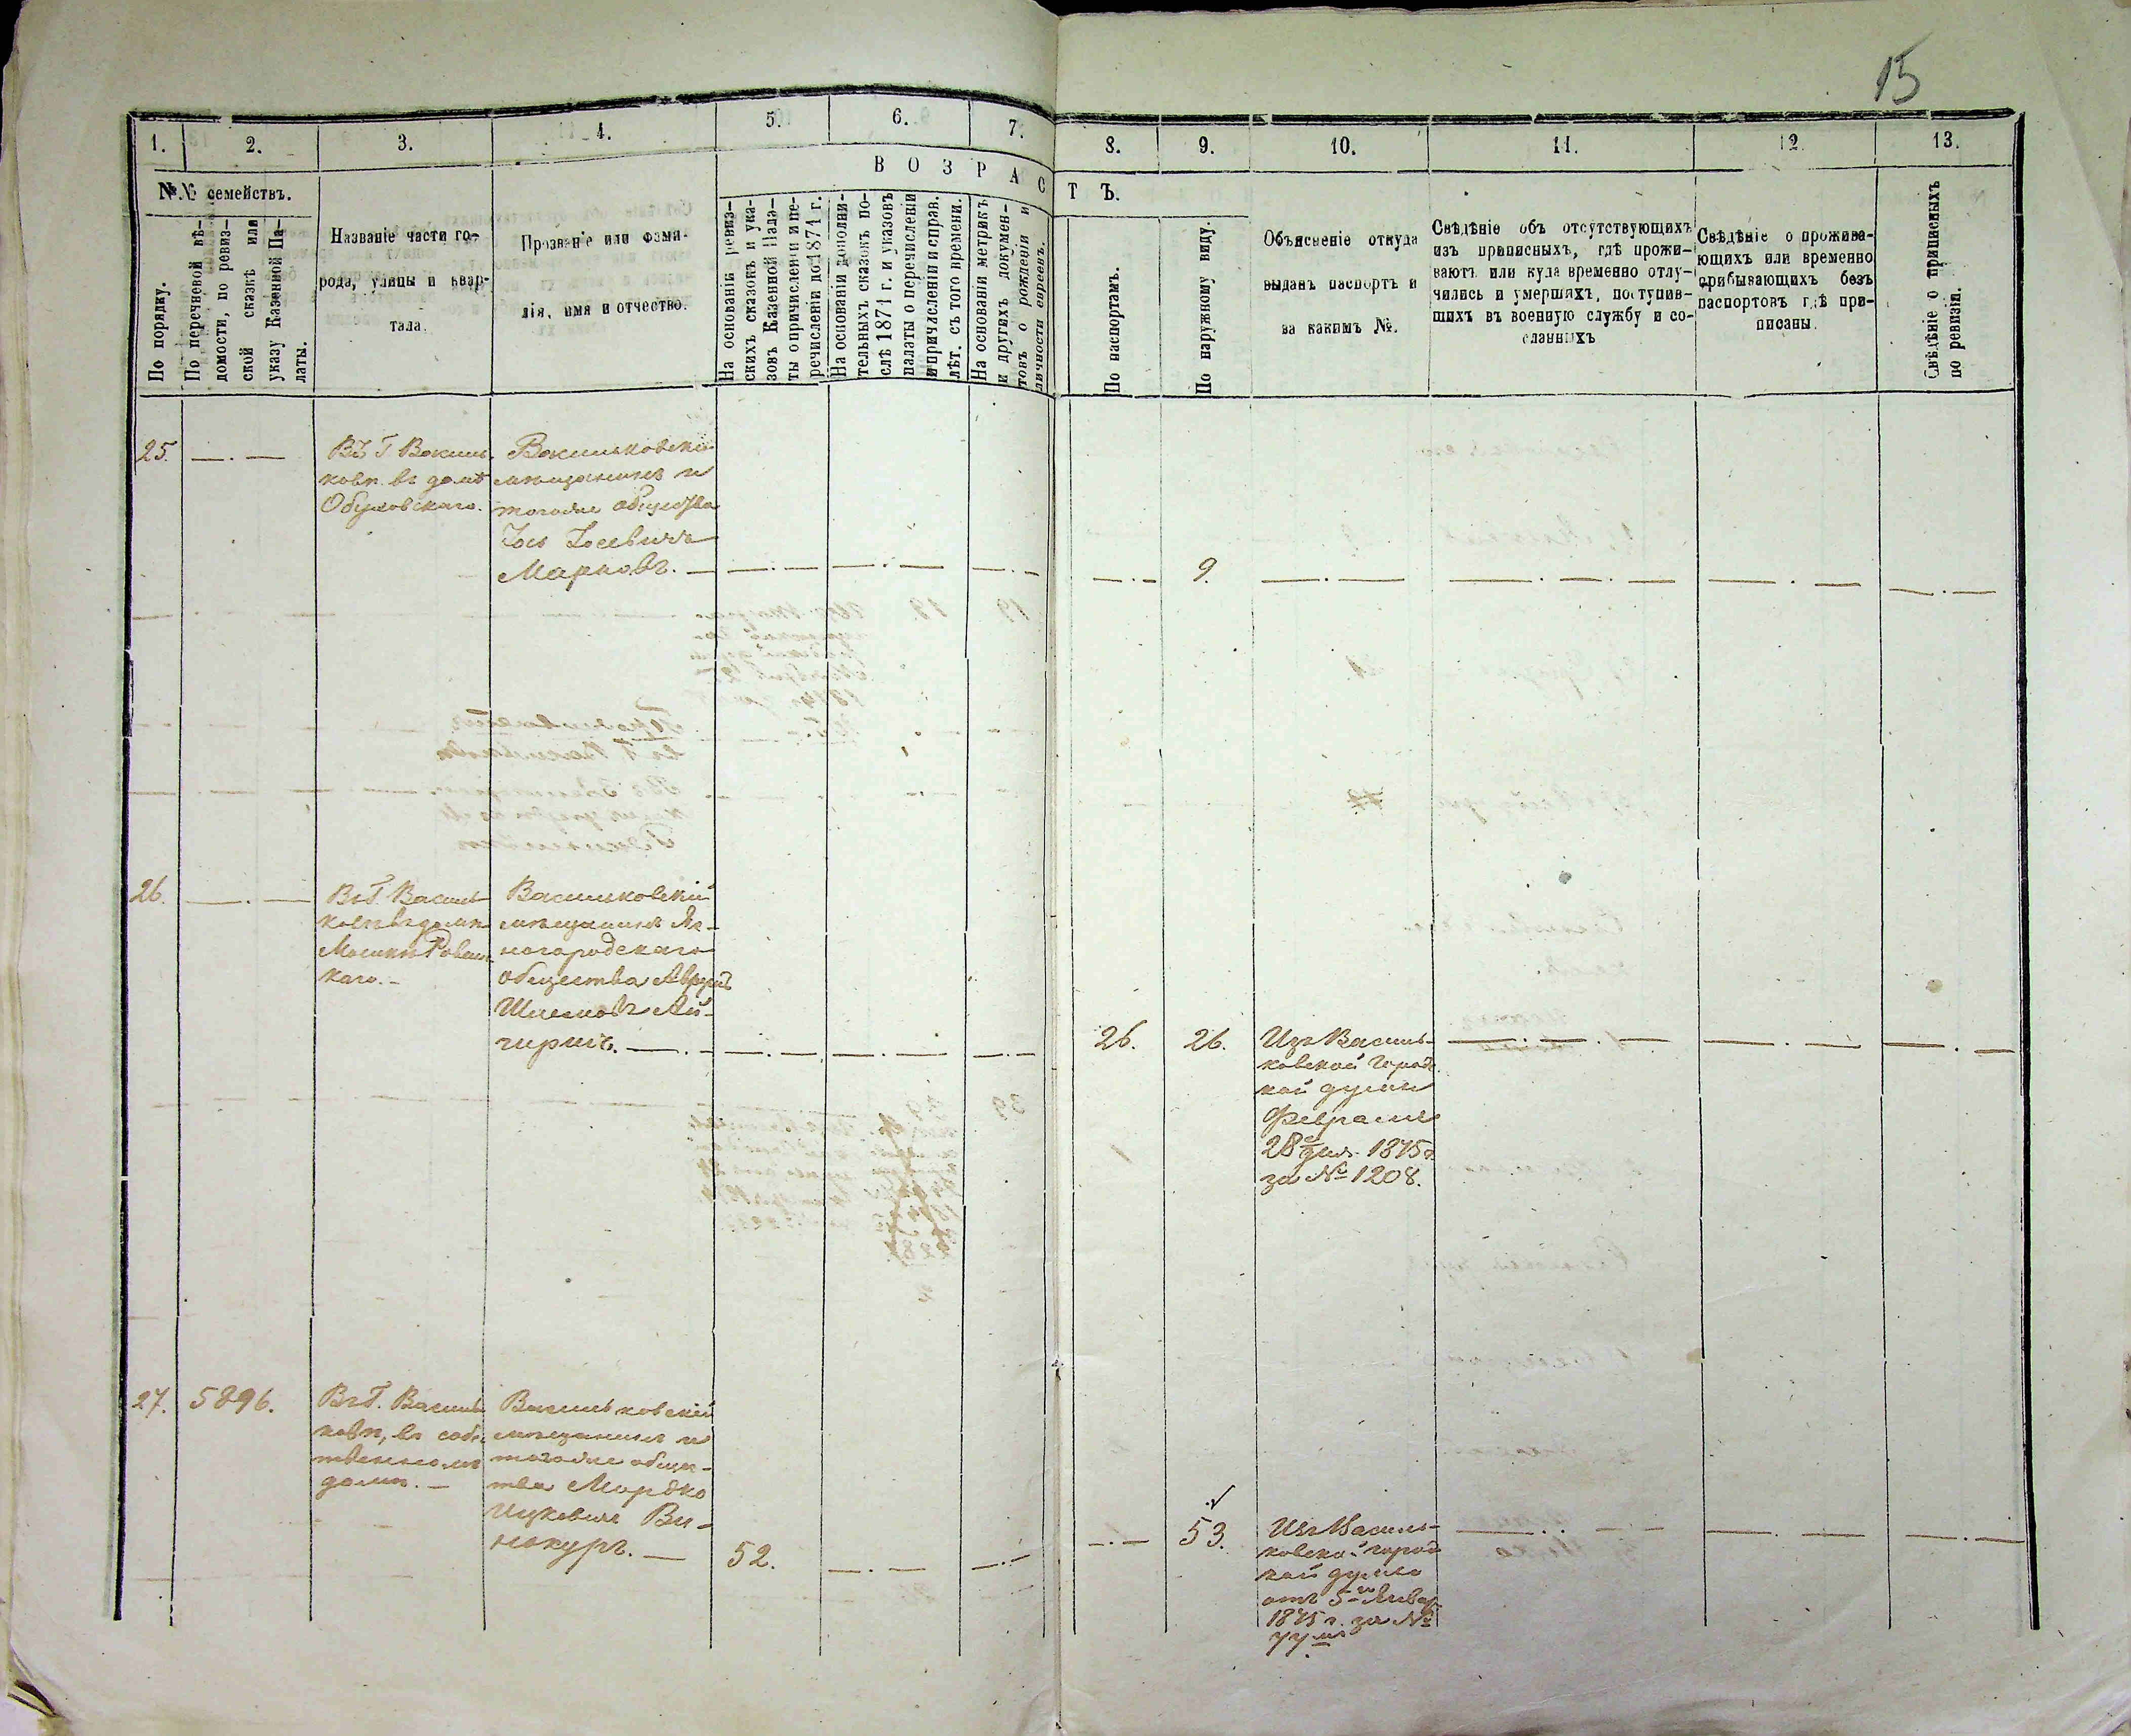 15
1.
2.
3.
4.
5.
6.
7.
8.
9.
10.
11.
12
13.
В О З Р А С Т Ъ.
№№ семействъ.
По порядку.
По перечневой вѣ-
домости, по ревиз-
ской сказкѣ или
указу Казенной Па-
латы.
Названіе части го-
рода, улицы и квар-
тала.
Прозваніе или фами-
лія, имя и отчество.
На основаніи ревиз-
скихъ сказокъ и ука-
зовъ Казенной Пала-
ты о причисленіи и пе-
речисленіи до 1871 г.
На основаніи дополни-
тельныхъ сказокъ по-
слѣ 1871 г. и указовъ
палаты о перечисленіи
и причисленіи и справ.
лѣт. съ того времени.
На основаніи метрикъ
и другихъ докумен-
товъ о рожденіи и
личности евреевъ.
По паспортамъ.
По наружному виду.
Объясненіе откуда
выданъ паспортъ и
за какимъ №.
Свѣдѣніе объ отсутствующихъ
изъ приписныхъ, гдѣ прожи-
ваютъ или куда временно отлу-
чились и умершихъ, поступив-
шихъ въ военную службу и со-
сланныхъ
Свѣдѣніе о прожива-
ющихъ или временно
прибывающихъ безъ
паспортовъ гдѣ при-
писаны.
Свѣдѣніе о приписныхъ
по ревизіи.
25.
Въ Г Василь
ковѣ въ домѣ
Обуховскаго.
Васильковскій
мѣщанинъ и
тогоже общества
Іось Іосевичъ
Марковъ.
9.
26.
Въ Г. Василь
ковѣ въ домѣ
Мошки
каго.
Васильковскій
мѣщанинъ Яс-
ногородскаго
общества Аврумъ
Шлемовъ
26.
26.
Изъ Василь-
ковской Городс
кой думы
Февраля
28 дня 1875 г.
за № 1208.
27.
5896.
Въ Г. Василь
ковѣ, въ собс
твенномъ
домѣ.
Васильковскій
мѣщанинъ и
тогоже общес-
тва Мордко
Ицковичъ Ви-
нокуръ.
52.
53.
Изъ Василь-
ковской город
кой думы
отъ 5 Январ
1875 г. за №
77